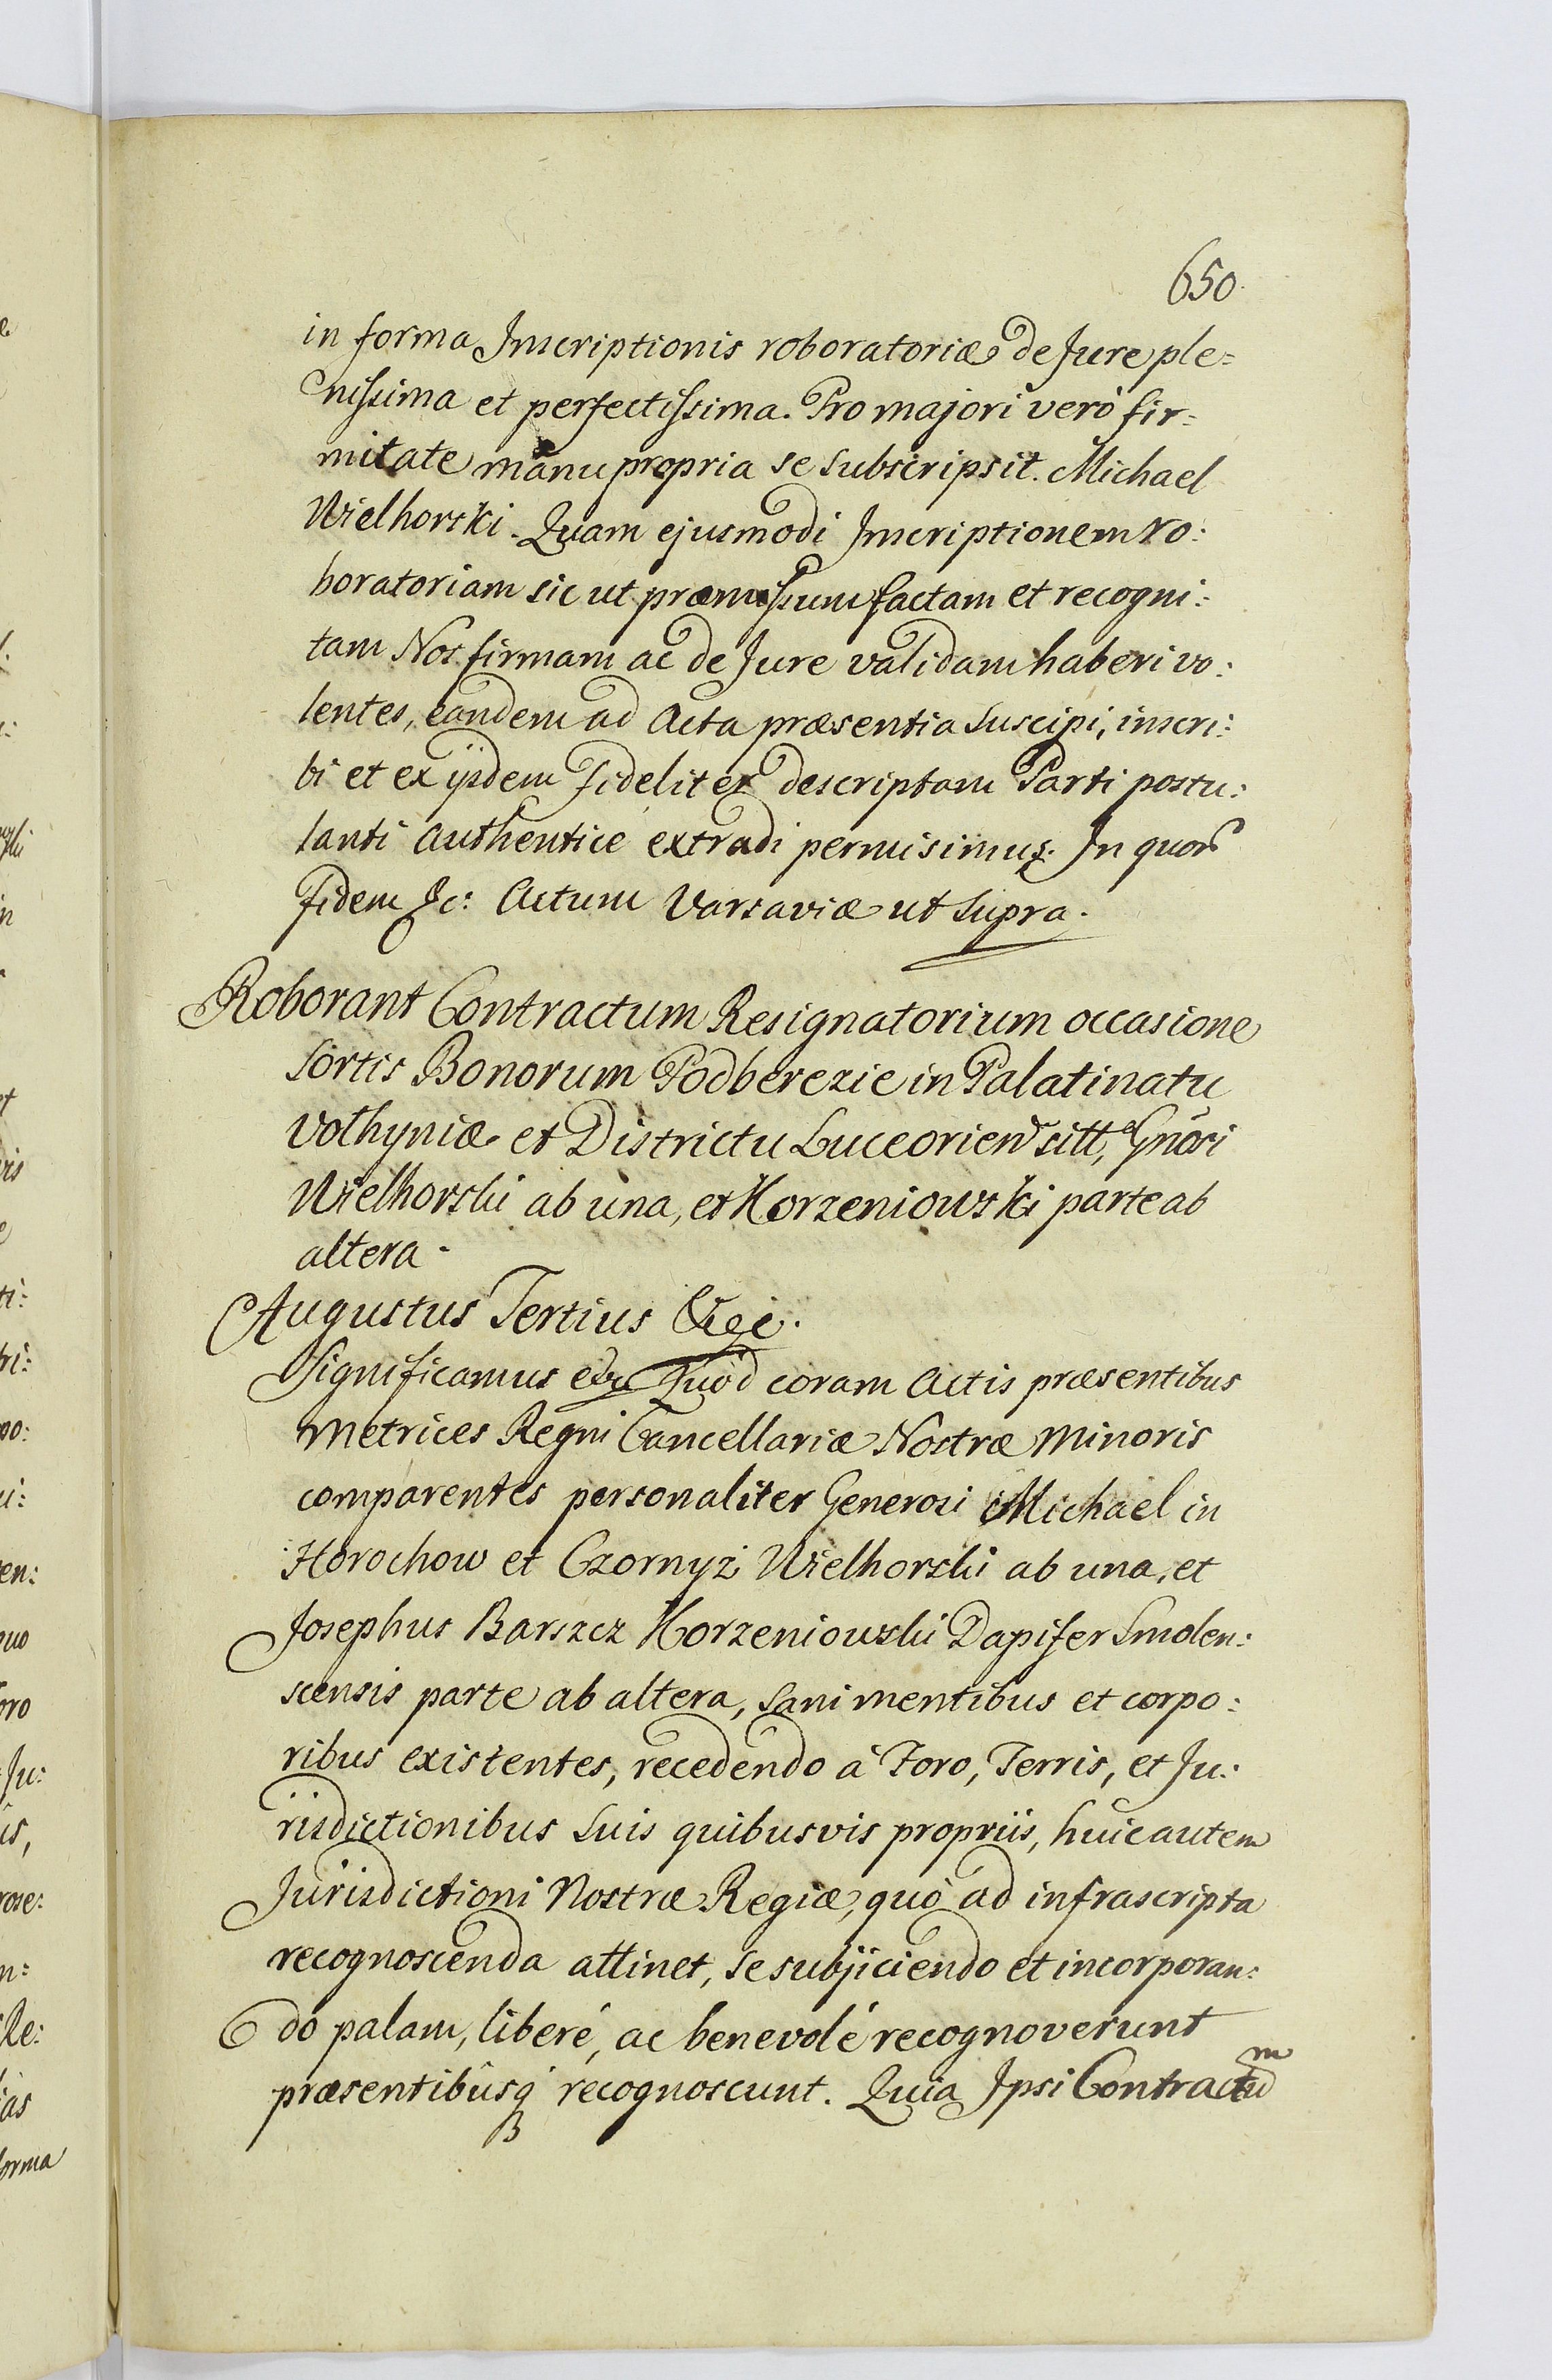 650.
in forma Inscriptionis roboratoriæ de Jure ple=
nissima et perfectissima. Pro majori verò fir=
mitate manu propria se subscripsit. Michael
Wielhorski. Quam ejusmodi Inscriptionem ro:
boratoriam sic ut præmissum factam et recogni:
tam Nos firmam ac de Jure validam haberi vo:
lentes, eandem ad Acta præsentia suscipi, inscri:
bi et ex ijsdem fideliter descriptam Parti postu:
lanti authentice extradi permisimus. In quor
fidem &c: Actum Varsaviæ ut supra.
Roborant Contractum Resignatorium occasione
sortis Bonorum Podberezie in Palatinatu
Volhyniæ et Districtu Luceorien sitt, Gnõsi
Wielhorski ab una, et Korzeniowski parte ab
altera.
Augustus Tertius &c.
Significamus etc Quod coram Actis præsentibus
Metrices Regni Cancellariæ Nostræ Minoris
comparentes personaliter Generosi Michael in
Horochow et Czornyż Wielhorski ab una, et
Josephus Barszcz Korzeniowski Dapifer Smolen:
scensis parte ab altera, sani mentibus et corpo:
ribus existentes, recedendo à Foro, Terris, et Ju:
risdictionibus suis quibusvis propriis, huic autem
Jurisdictioni Nostræ Regiæ, quò ad infrascripta
recognoscenda attinet, se subjiciendo et incorporan:
do palam, liberé, ac benevolé recognoverunt
præsentibûsq recognoscunt. Quia Ipsi Contractũ
m